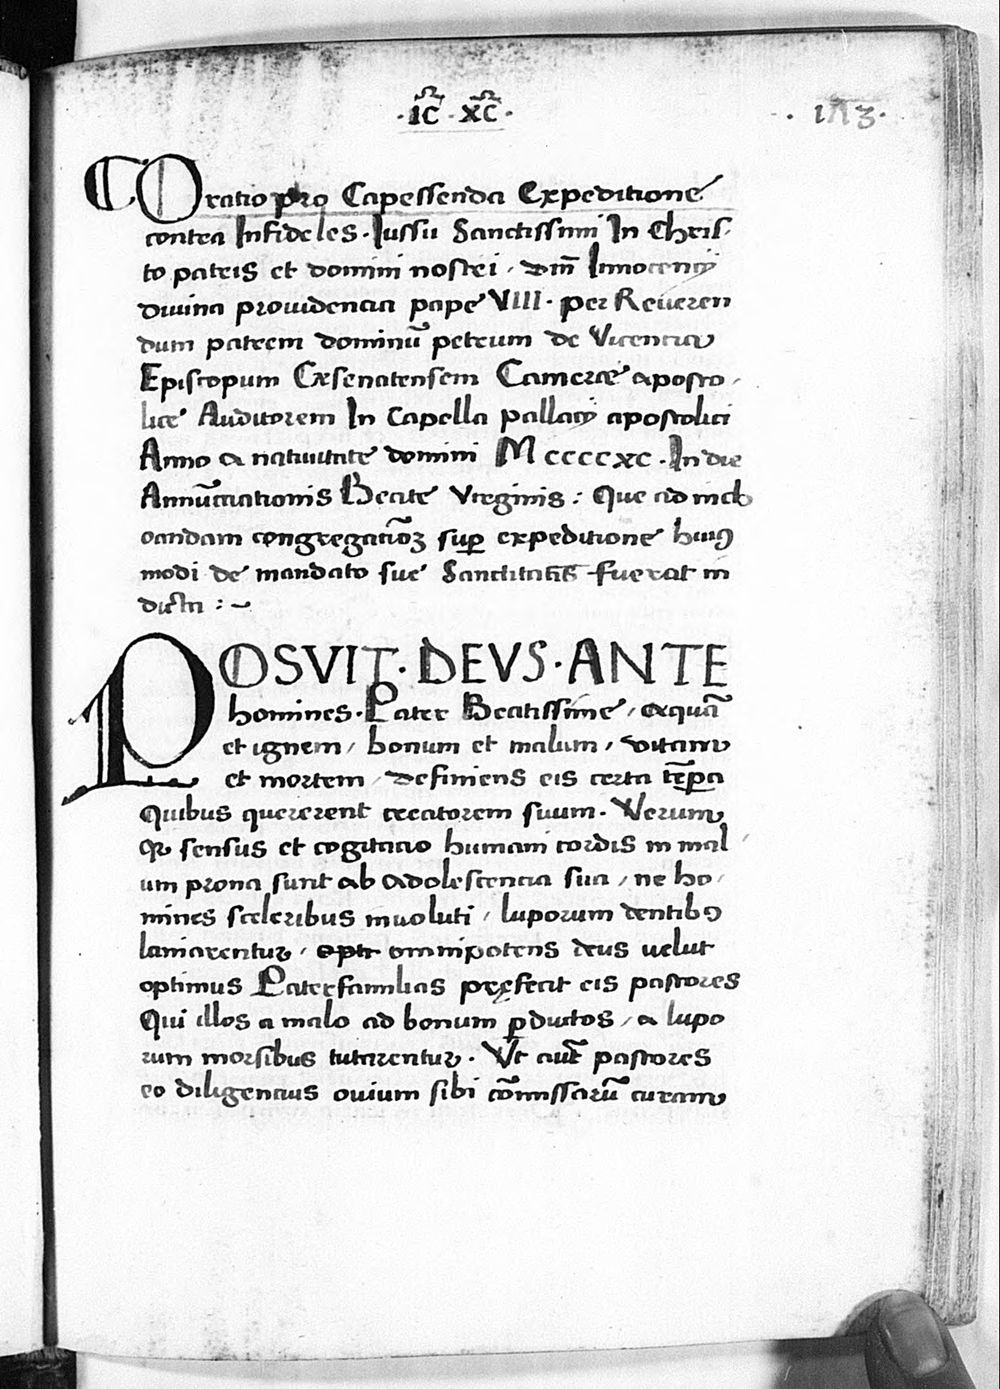 ·IC· XC·
· 173 ·
Oratio pro Capessenda Expeditione
contra Infideles · Iussu Sanctissimi In Chris
to patris et domini nostri, dm̄ Innocencij
diuina prouidencia pape VIII · per Reueren
dum patrem dominū petrum de Vicencia
Episcopum Cæsenatensem Cameræ aposto
lice Auditorem In Capella pallacij apostolici
Anno a natiuitate domini MCCCCXC · In die
Annūciationis Beate Virginis : Que ad inch
oandam congregatiōꝫ suꝑ expeditione huiꝰ
modi de mandato sue Sanctitatis fuerat in
dicta : ~
POSVIT · DEVS · ANTE
homines · Pater Beatissime, aquā
et ignem, bonum et malum, vitam
et mortem, definiens eis certa tēꝑa
Quibus quererent creatorem suum. Verum
qꝛ sensus et cogitacio humani cordis in mal
um prona sunt ab adolescencia sua, ne ho
mines sceleribus inuoluti, luporum dentibꝰ
laniarentur, opti omnipotens deus uelut
optimus Paterfamilias pręfecit eis pastores
Qui illos a malo ad bonum ꝑductos, a lupo
rum morsibus tutarentur. Vt aūt pastores
eo diligencius ouium sibi cōmissarū curam